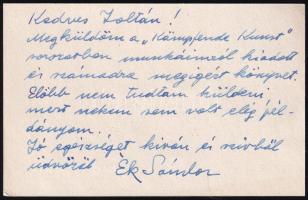 Kedves Zoltán!
Megküldöm a „Kämpfende Kunst"
sorozatban munkáimról kiadott
és számodra megigért könyvet.
Előbb nem tudtam küldeni
mert nekem sem volt elég pél-
dányom.
Jó egészséget kiván és szivből
üdvözöl Ék Sándor